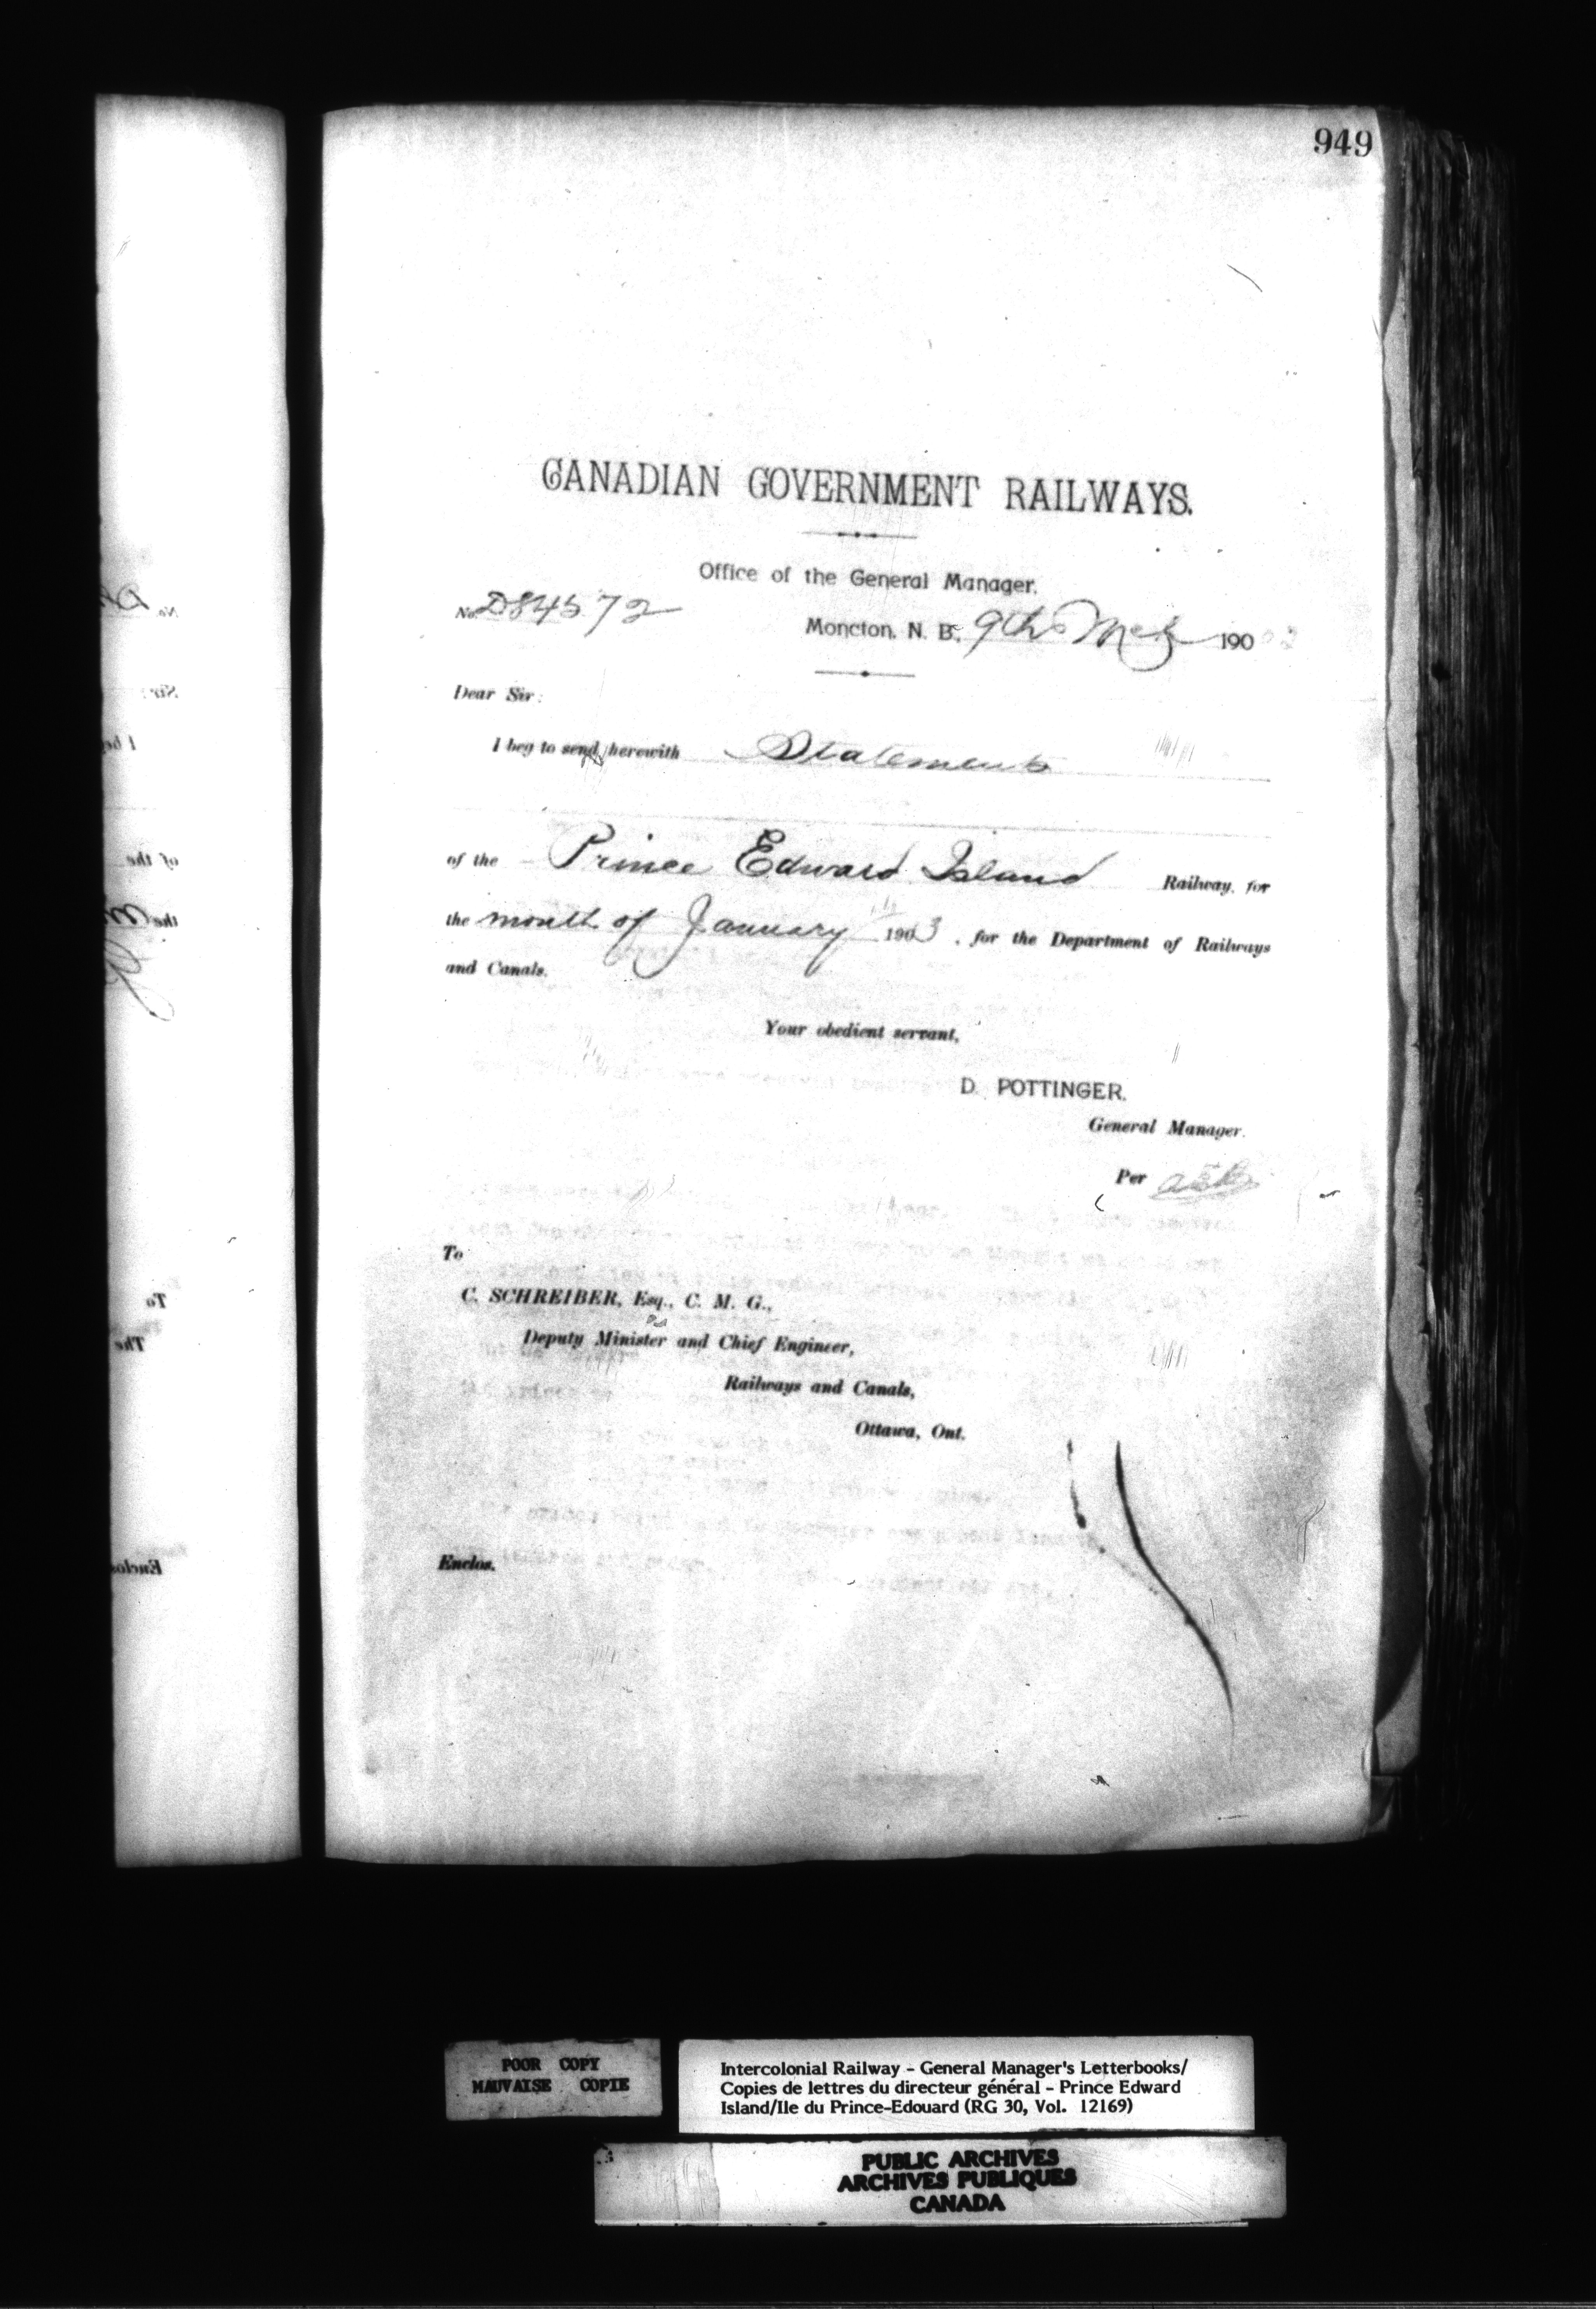 949
CANADIAN GOVERNMENT RAILWAYS.
Office of the General Manager.
No. D84572
Moncton, N. B., 9th Mch 1903
Dear Sir:
I beg to send herewith Statements
of the Prince Edward Island Railway, for
the month of January 1903, for the Department of Railways
and Canals.
Your obedient servant,
D. POTTINGER.
General Manager.
Per
To
C. SCHREIBER, Esq., C. M. G.,
Deputy Minister and Chief Engineer,
Railways and Canals,
Ottawa, Ont.
Enclos.
POOR COPY
MAUVAISE COPIE
Intercolonial Railway - General Manager's Letterbooks/
Copies de lettres du directeur général - Prince Edward
Island/Ile du Prince-Edouard (RG 30, Vol. 12169)
PUBLIC ARCHIVES
ARCHIVES PUBLIQUES
CANADA